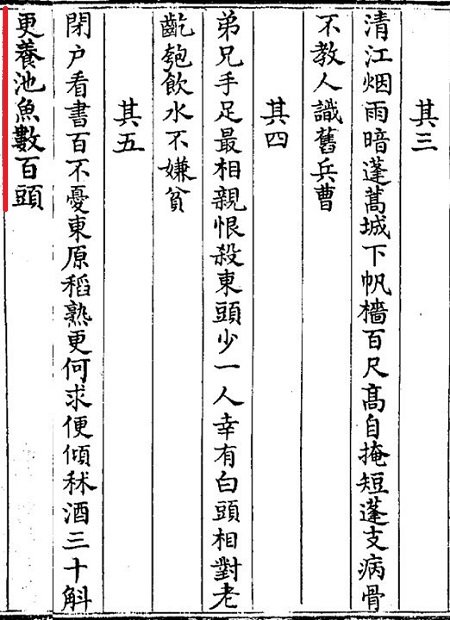 其三
清江烟雨暗蓬蒿城下帆檣百尺髙自掩短蓬支病骨
不教人識舊兵曹
其四
弟兄手足最相親恨殺東頭少一人幸有白頭相對老
齕匏飲水不嫌貧
其五
閉户看書百不憂東原稻熟更何求便傾秫酒三十斛
更養池魚數百頭